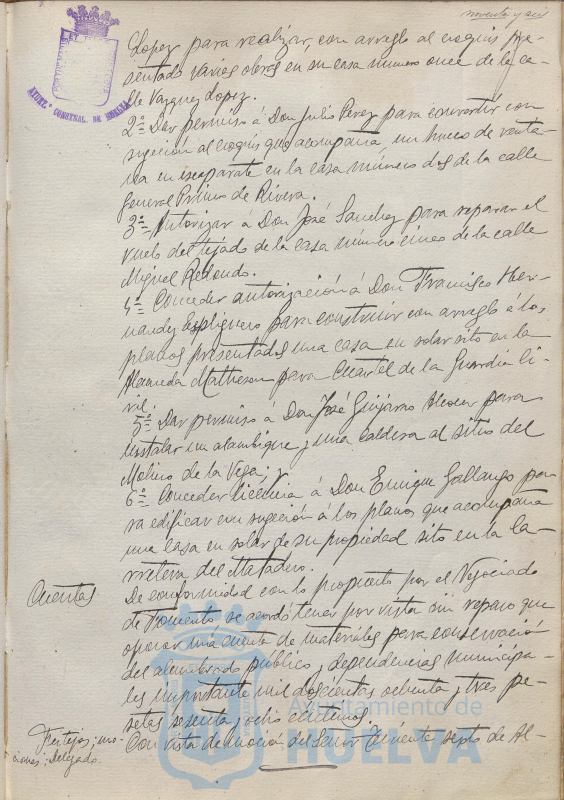 noventa y seis
AYUNT.º CONSTNAL. DE HUELVA
Lopez para realizar, con arreglo al croquis pre-
sentado varias obras en su casa número once de la ca-
lle Vazquez Lopez.
2ª= Dar permiso á Don Julio Perez para convertir con
sugeción al croquis que acompaña, un hueco de venta-
na en escaparate en la casa número dos de la calle
General Primo de Rivera.
3ª= Autorizar á Don José Sanchez para reparar el
vuelo del tejado de la casa número cinco de la calle
Miguel Redondo.
4ª= Conceder autorización á Don Francisco Her-
nandez Espliguero para construir con arreglo á los
planos presentados una casa en solar sito en la
Alameda Matheson para Cuartel de la Guardia Ci-
vil.
5ª= Dar permiso á Don José Guijarro para
instalar un alambique y una caldera al sitio del
Molino de la Vega; y
6ª= Conceder licencia á Don Enrique Gallango pa-
ra edificar con sugeción á los planos que acompaña
una casa en solar de su propiedad sito en la Ca-
rretera del Matadero.
Cuentas
De conformidad con lo propuesto por el Negociado
de Fomento se acordó tener por vista sin reparo que
oponer una cuenta de materiales para conservación
del alumbrado público y dependencias municipa-
les importante mil doscientas ochenta y tres pe-
setas sesenta y ocho céntimos.
Festejos; mo-
ciones; Delegado.
Con vista de moción del Señor Teniente sexto de Al-
Ayuntamiento de
HUELVA